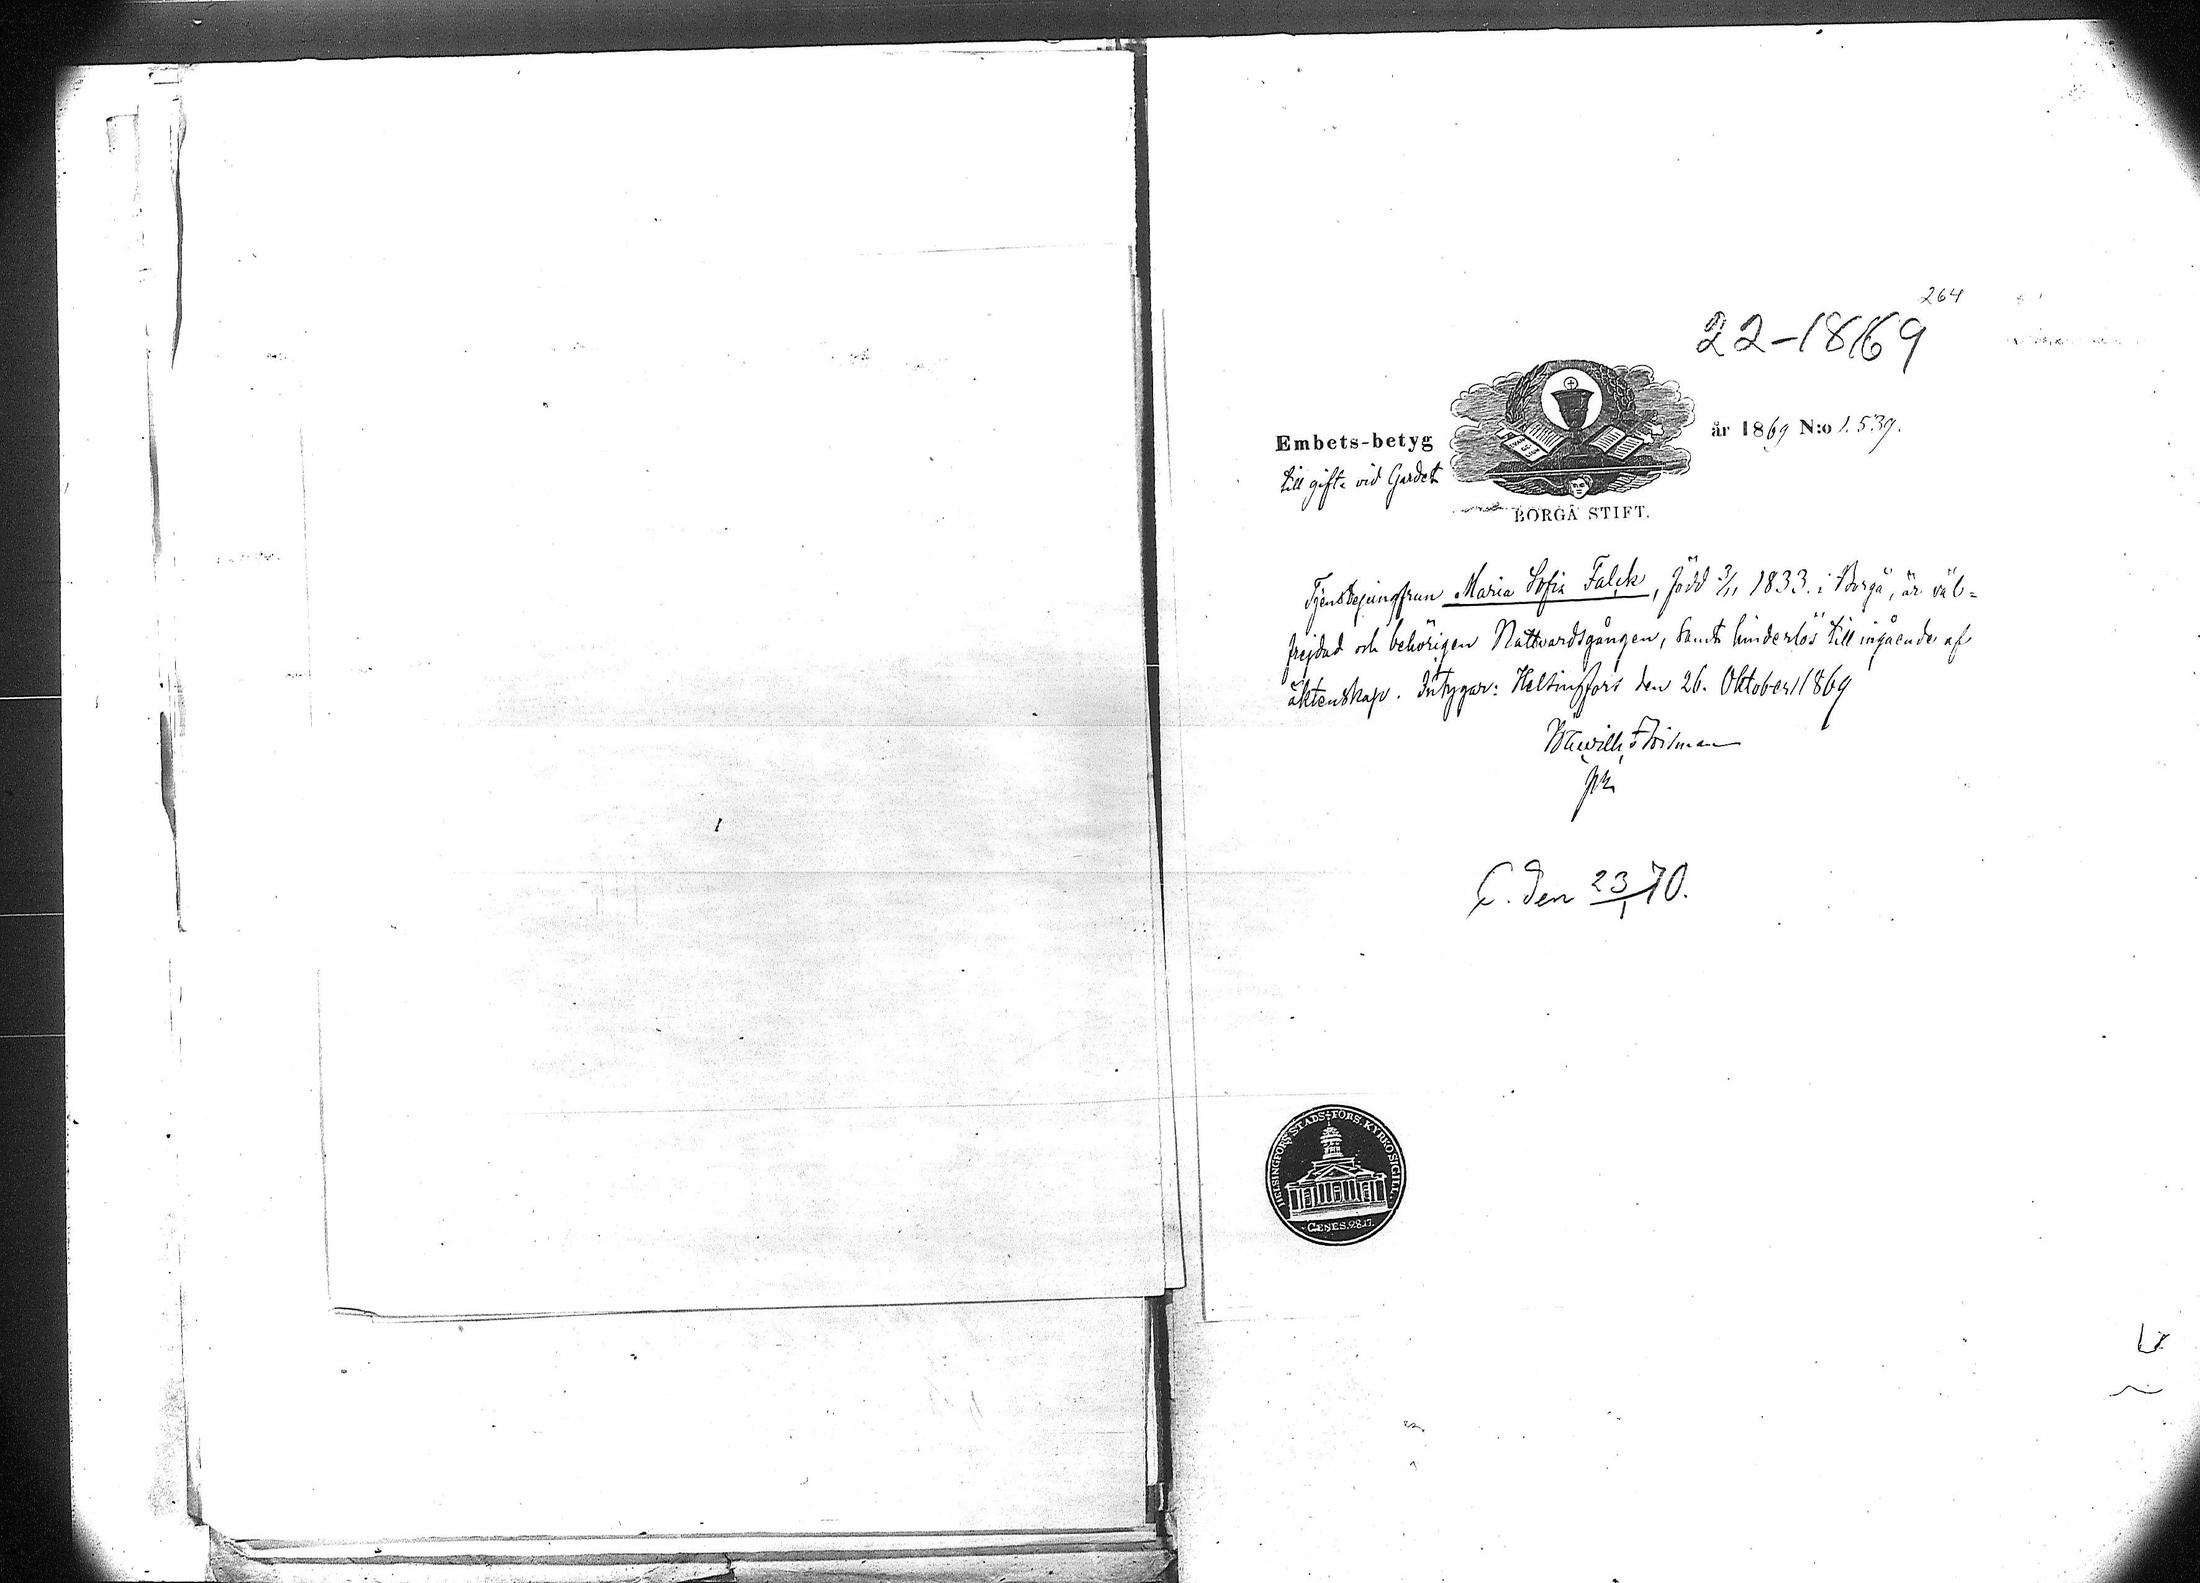 264
22-1869
Embets-betyg
år 1869 N:o 1.539.
till gifte vid Gardet
BORGÅ STIFT.
Tjenstejungfrun Maria Sofia Falck, född 3/11 1833. i Borgå, är väl-
frejdad och behörigen Nattvardsgången, samt hinderlös till ingående af
äktenskap. Intygar: Helsingfors den 26. Oktober 1869
C. den 23/1 70.
HELSINGFORS STADS-FÖRS. KYRKOSIGILL.
GENES. 28.17.